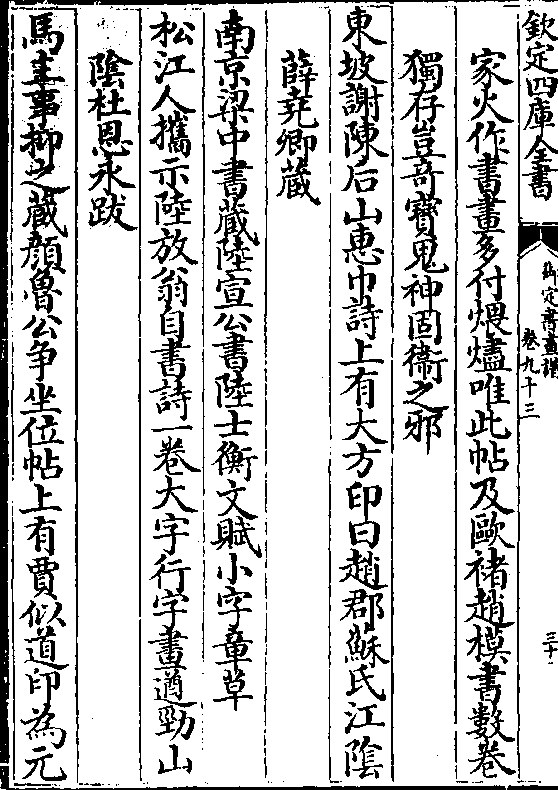 欽定四庫全書
御定書畫譜
卷九十三
三十
家火作書畫多付煨燼唯此帖及歐禇趙模書數卷
獨存豈竒寶鬼神固衞之邪
東坡謝陳后山惠巾詩上有大方印曰趙郡蘇氏江陰
薛堯卿藏
南京梁中書藏陸宣公書陸士衡文賦小字章草
松江人攜示陸放翁自書詩一卷大字行字畫遒勁山
陰杜恩永跋
馬主事抑之藏顔魯公爭坐位帖上有賈似道印為元